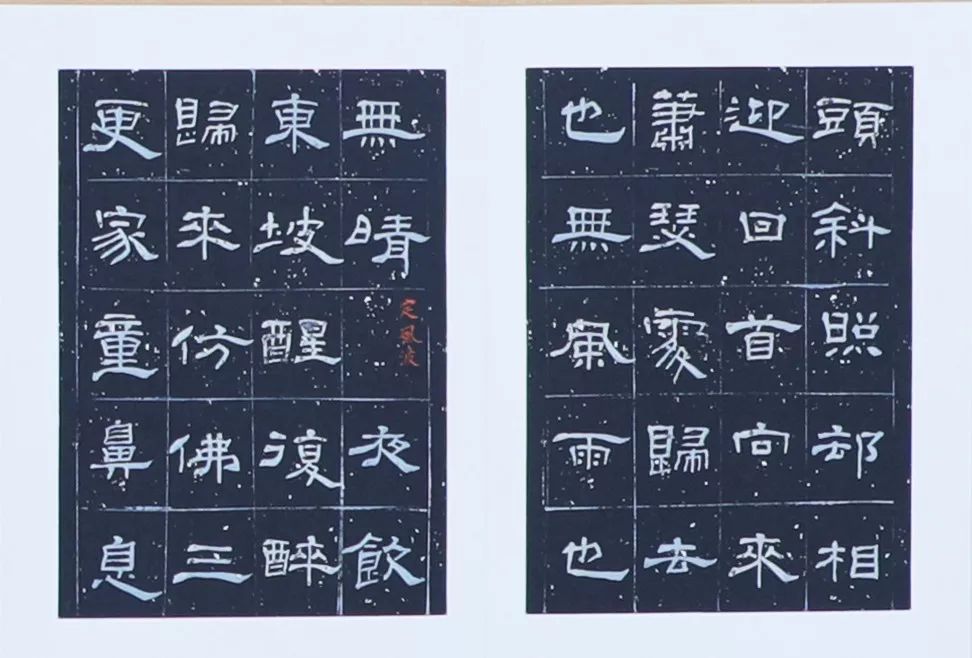 頭斜照却相
迎回首向來
蕭瑟處歸去
也無風雨也
無晴
定風波
夜飲
東坡醒復醉
歸來仿佛三
更家童鼻息